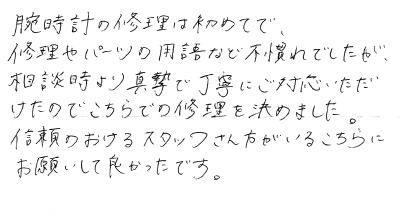 腕時計の修理は初めてで、
修理やパーツの用語など不慣れでしたが、
相談時より真摯で丁寧にご対応いただ
けたのでこちらでの修理を決めました。
信頼のおけるスタッフさん方がいるこちらに
お願いして良かったです。